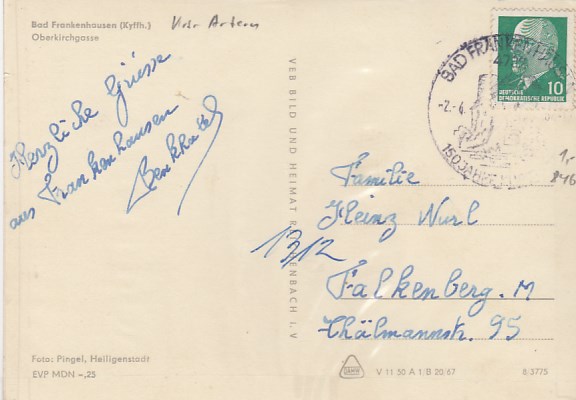 Bad Frankenhausen (Kyffh.)
Oberkirchgasse
Krs. Artern
Herzliche Grüsse
aus Frankenhausen
VEB BILD UND HEIMAT REICHENBACH I. V
BAD FRANKENHAUSEN
-2.-6.
150 JAHRE
10
DEUTSCHE
DEMOKRATISCHE REPUBLIK
1,-
Familie
Heinz Wurl
1312
Falkenberg. M
Thälmannstr. 95
Foto: Pingel, Heiligenstadt
EVP MDN -,25
V 11 50 A 1/B 20/67
8/3775